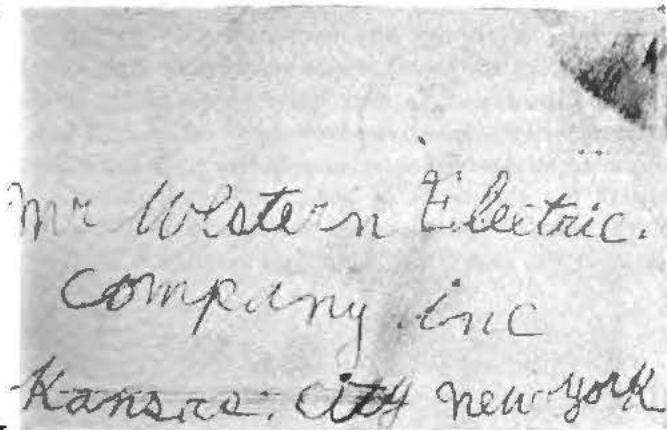 mr Western Electric.
Company inc
Kansas: City new york